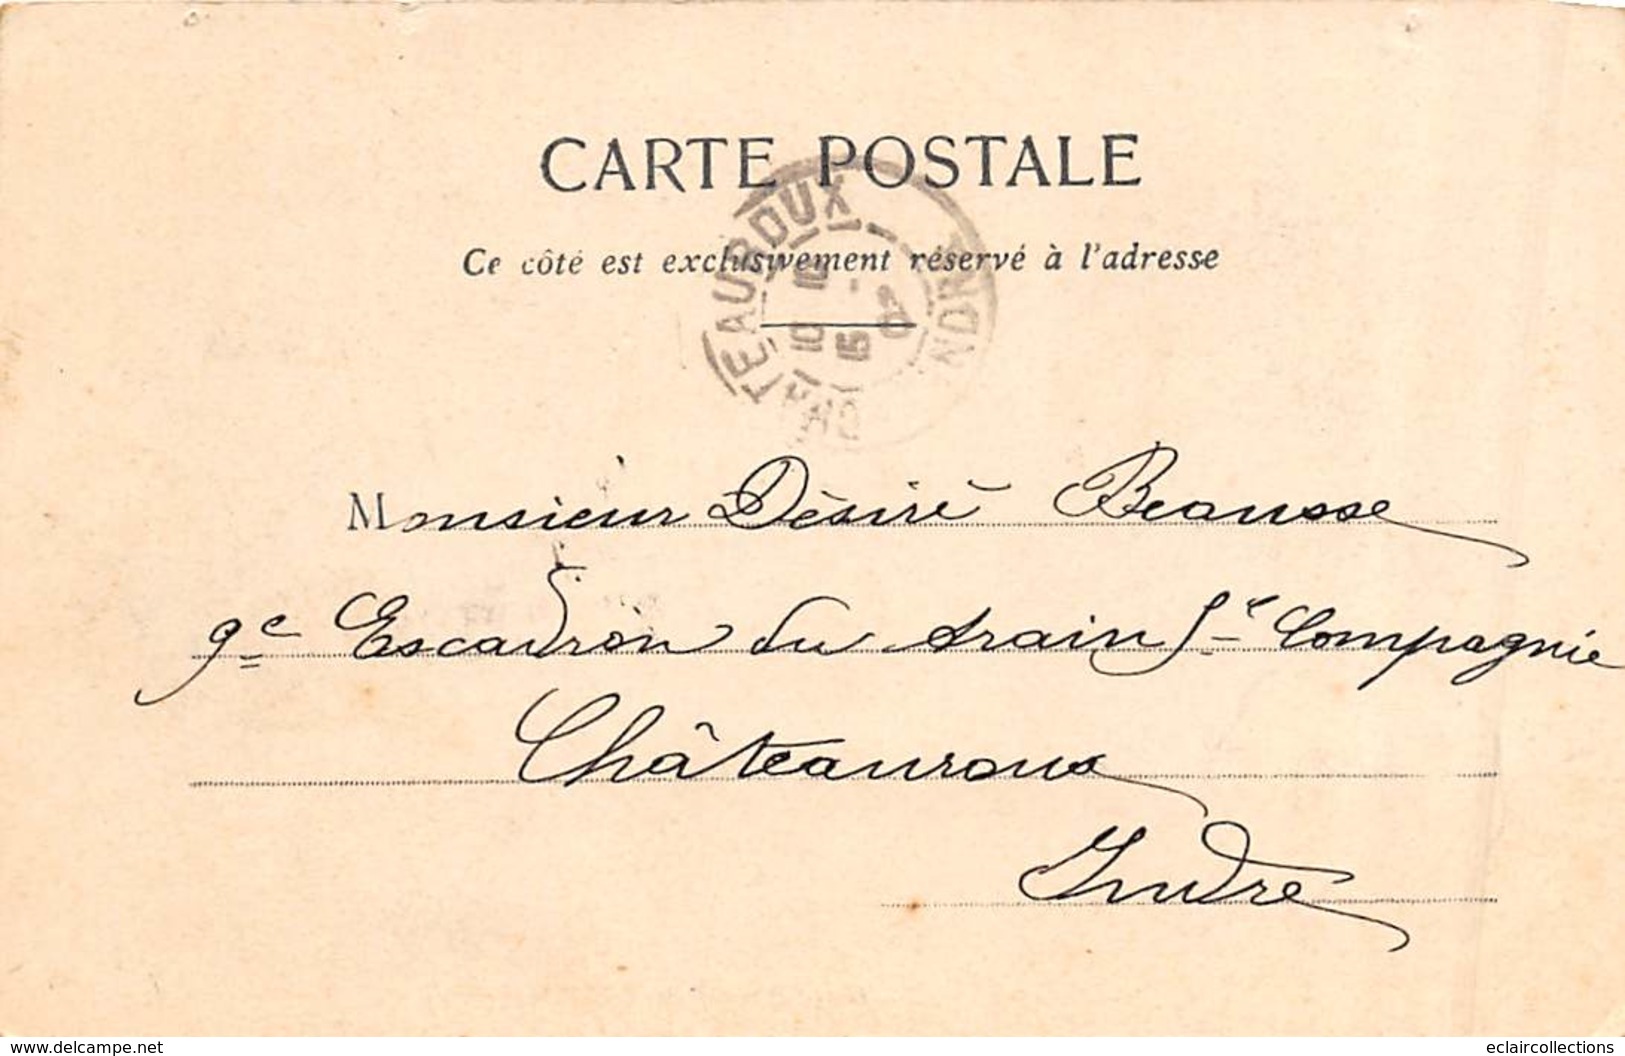 CARTE POSTALE
Ce côté est exclusivement réservé à l'adresse
CHATEAUROUX
INDRE
Monsieur Désiré Beausse
9e Escadron du train Compagnie
Châteauroux
Indre
www.delcampe.net
eclaircollections